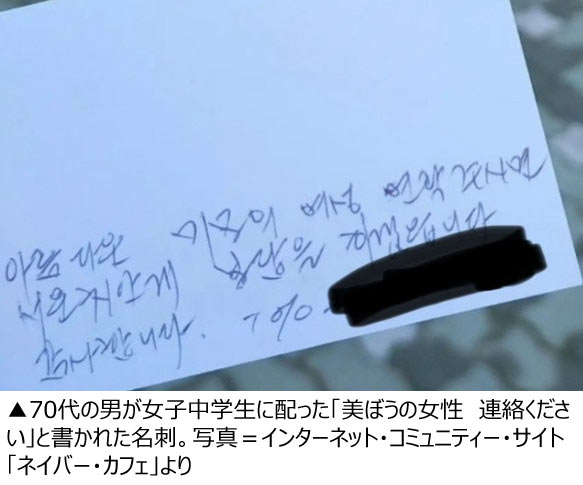 아름다운 미모의 여성 연락 주시면
서운치안게
감사합니다. 010-
▲70代の男が女子中学生に配った「美ぼうの女性　連絡くださ
い」と書かれた名刺。写真＝インターネット・コミュニティー・サイト
「ネイバー・カフェ」より